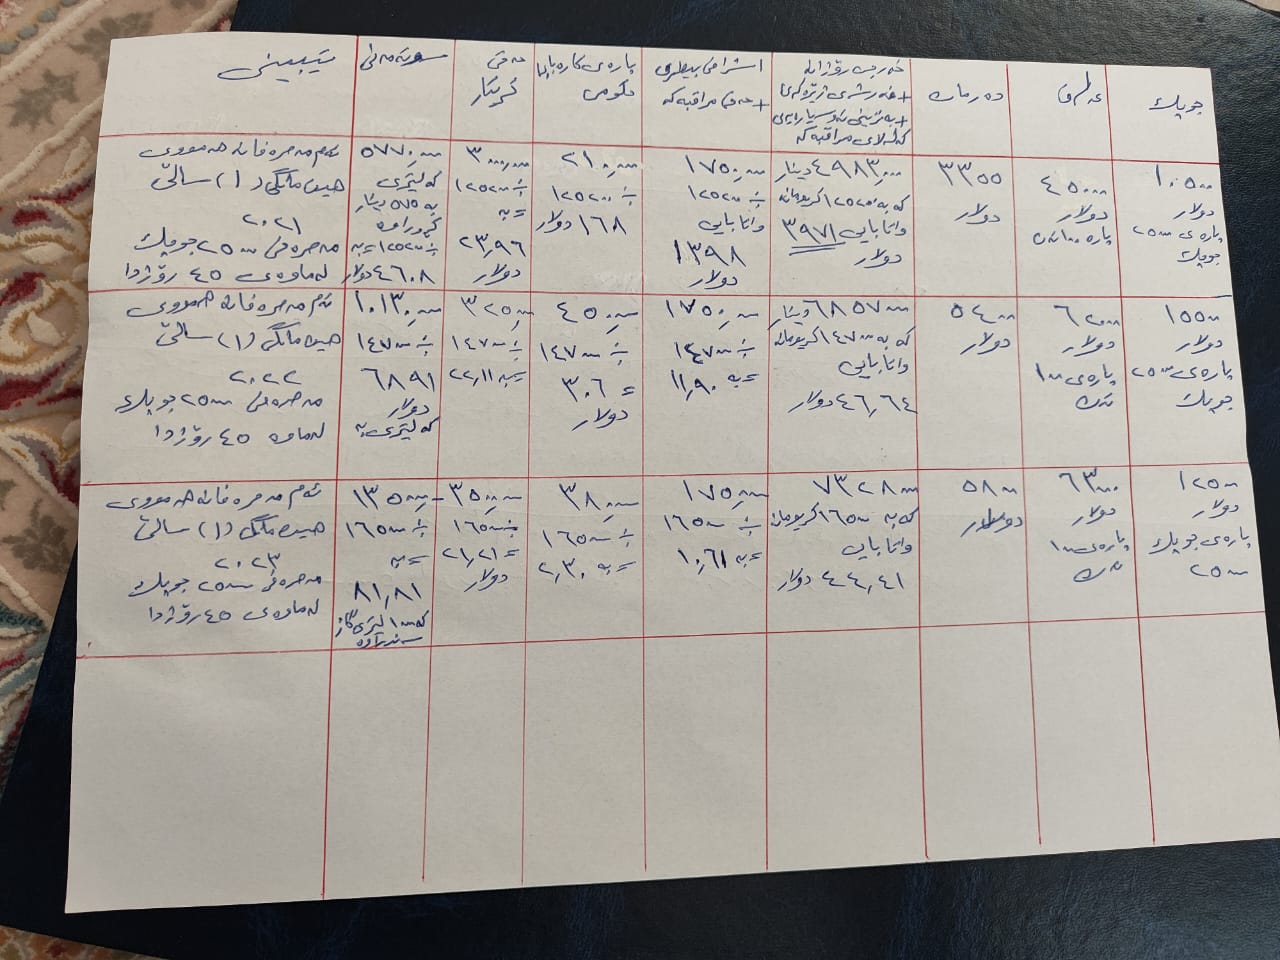 جوجك
عەلەف
دەرمان
خەرجی رۆژانە
+ بەنزینی ئەو سیارەیەی
کە لەلای مراقبەکە
اشرافی بیطری
+ حەقی مراقبەکە
پارەی کارەبای
حکومی
حەقی
کرێکار
سووتەمەنی
تێبینی
١٠٥٠٠
دولار
پارەی ٢٥٠٠٠
جوجك
٤٥٠٠٠
دولار
پارە ١٠٠ تەن
٣٣٠٠
دولار
٤٩٨٣٠٠٠ دینار
کە بە ١٢٥٢٠٠ کریومانە
واتا بایی ٣٩٧١
دولار
١٧٥٠٠٠٠
÷ ١٢٥٢٠٠
واتا بایی
١٣٩٨
دولار
٢١٠٠٠٠
÷ ١٢٥٢٠٠
١٦٨ دولار
٣٠٠٠٠٠٠
÷ ١٢٥٢٠٠
= بە
٢٣٩٦
دولار
٥٧٧٠٠٠٠
کە لیتری
بە ٥٧٥ دینار
کڕدراوە
÷ ١٢٥٢٠٠ = بە
٤٦٠٨ دولار
ئەم مەصرەفانە هەمووی
هین مانگی (١) ساڵی
٢٠٢١
مەصرەفی ٢٥٠٠٠ جوجك
لە ماوەی ٤٥ رۆژدا
١٥٥٠٠
دولار
پارەی ٢٥٠٠٠
جوجك
٦٢٠٠٠
دولار
پارەی ١٠٠
تەن
٥٤٠٠
دولار
٦٨٥٧٠٠٠ دینار
کە بە ١٤٧٠٠٠ کریومانە
واتا بایی
٤٦,٦٤ دولار
١٧٥٠٠٠٠
÷ ١٤٧٠٠٠
= بە ١١,٩٠
٤٥٠٠٠٠
÷ ١٤٧٠٠٠
= ٣٠٦
دولار
٣٢٥٠٠٠٠
÷ ١٤٧٠٠٠
= بە ٢٢,١١
١٠١٣٠٠٠٠
÷ ١٤٧٠٠٠
٦٨٩١
دولار
کە لیتری بە
ئەم مەصرەفانە هەمووی
هین مانگی (١) ساڵی
٢٠٢٢
مەصرەفی ٢٥٠٠٠ جوجك
لە ماوە ٤٥ رۆژدا
١٢٥٠٠
دولار
پارەی جوجك
٢٥٠٠٠
٦٣٠٠٠
دولار
پارەی ١٠٠
تەن
٥٨٠٠
دولار
٧٣٢٨٠٠٠
کە بە ١٦٥٠٠٠ کریومانە
واتا بایی
٤٤,٤١ دولار
١٧٥٠٠٠٠
÷ ١٦٥٠٠٠
= بە ١٠,٦١
٣٨٠٠٠٠
÷ ١٦٥٠٠٠
= بە ٢,٣٠
٣٥٠٠٠٠٠
÷ ١٦٥٠٠٠
= ٢١,٢١
دولار
١٣٥٠٠٠٠٠
÷ ١٦٥٠٠٠
= بە
٨١,٨١
کە ١٠٠٠ لیتری گاز
سەندراوە
ئەم مەصرەفانە هەمووی
هین مانگی (١) ساڵی
٢٠٢٣
مەصرەفی ٢٥٠٠٠ جوجك
لە ماوەی ٤٥ رۆژدا